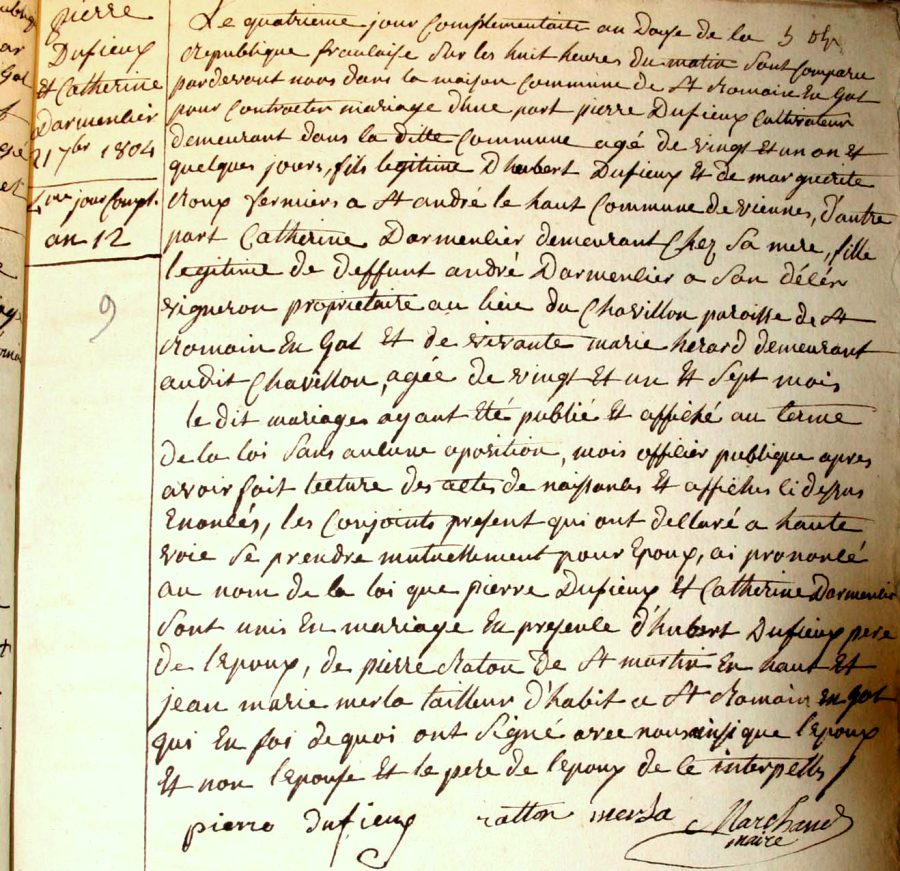 pierre
Dufieux
et Catherine
Darmenlier
21 7bre 1804
4me jour Compl.
an 12
9
Le quatrieme jour Complementaire an Douse de la
republique francaise sur les huit heures du matin sont Comparu
pardevant nous dans la maison Commune de St romain en Gal
pour Contracter mariage d'une part pierre Dufieux Cultivateur
demeurant dans la ditte Commune agé de vingt et un an et
quelques jours, fils legitime D'hubert Dufieux et de marguerite
roux fermiers a St andré le haut Commune de viennes, d'autre
part Catherine Darmenlier demeurant Chez sa mere, fille
legitime de deffunt andré Darmenlier a son délés
vigneron proprietaire au lieu du Chavillon paroisse de St
romain en Gal et de vivante marie herard demeurant
audit Chavillon, agée de vingt et un et sept mois
le dit mariages ayant été publié et affiché au terme
de la loi sans aucune oposition, mois officier publique apres
avoir fait lecture des actes de naissances et affiches ci dessus
Enoncés, les Conjoints present qui ont dellaré a haute
voie se prendre mutuellement pour Epoux, ai prononcé
au nom de la loi que pierre Dufieux et Catherine Darmenlier
sont unis en mariage en presence d'hubert Dufieux pere
de l'epoux, de pierre raton de St martin en haut et
jean marie merla tailleur d'habit a St romain en gal
qui en foi de quoi ont signé avec nous ainsi que l'epoux
et non l'epouse et le pere de l'epoux de ce interpellés
pierre dufieux ratton merla Marchand
maire